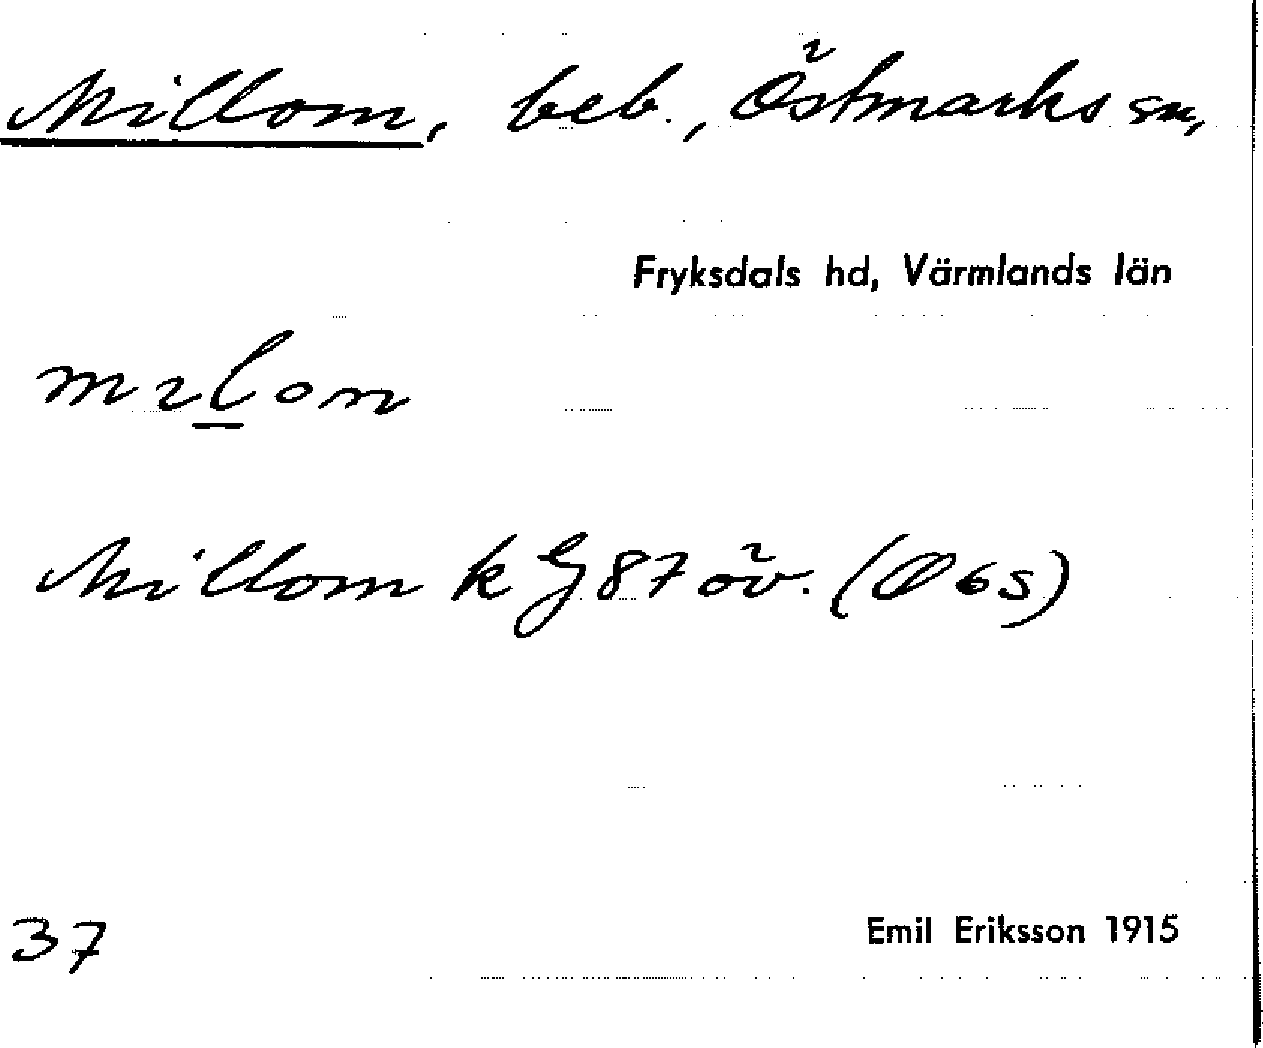 Millom, beb., Östmarks sn,
Fryksdals hd, Värmlands län
mılom
Millom k G 87 öv. (Ø 6s)
37
Emil Eriksson 1915